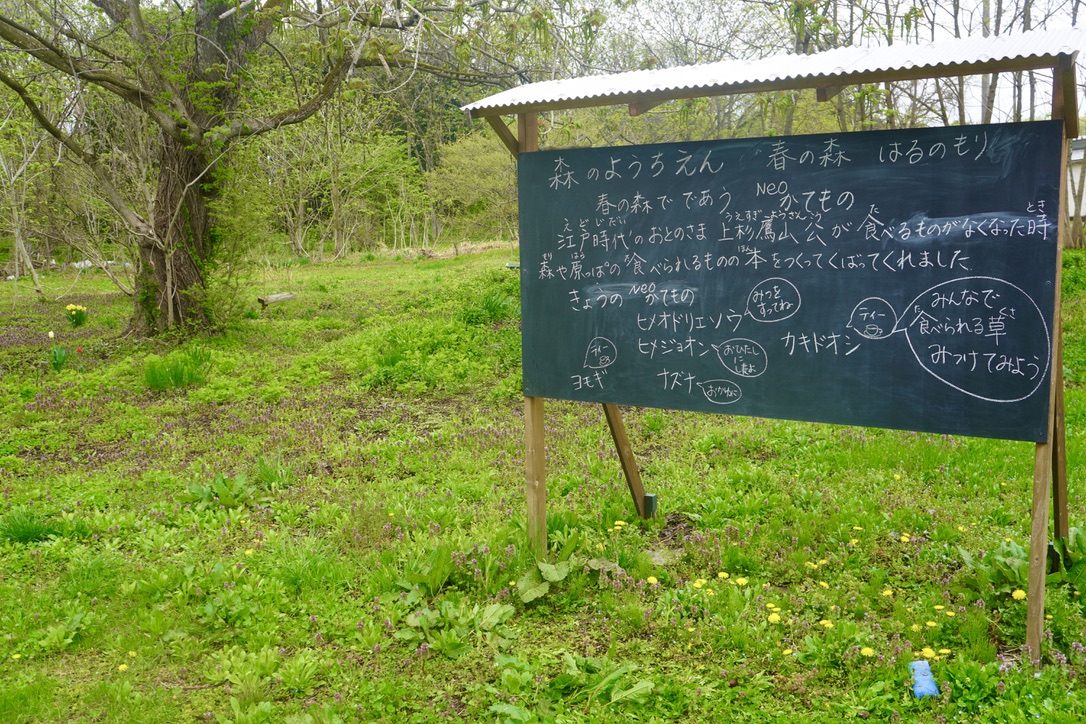 森のようちえん 春の森 はるのもり
春の森で であう Neoかてもの
江戸時代のおとのさま 上杉鷹山公が 食べるものがなくなった時
森や原っぱの 食べられるものの 本をつくってくばってくれました
きょうの Neoかてもの
ヒメオドリコソウ みつをすってね
ヒメジョオン おひたしにしましょ
カキドオシ ティー
ヨモギ ティー
ナズナ おかゆに
みんなで
食べられる草
みつけてみよう